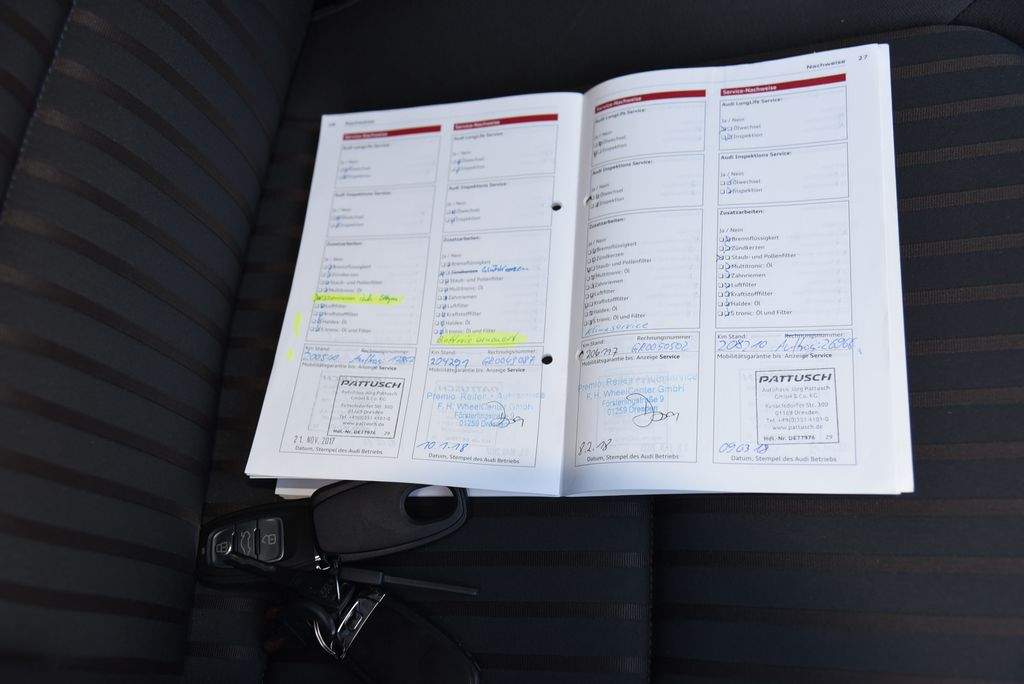 Nachweise
Service-Nachweise
Audi LongLife Service:
Ja / Nein
Ölwechsel
Inspektion
Audi Inspektions Service:
Ja / Nein
Ölwechsel
Inspektion
Zusatzarbeiten:
Ja / Nein
Bremsflüssigkeit
Zündkerzen
Staub- und Pollenfilter
Multitronic: Öl
Zahnriemen
Luftfilter
Kraftstofffilter
Haldex: Öl
S tronic: Öl und Filter
Km Stand: Rechnungsnummer:
Mobilitätsgarantie bis: Anzeige Service
PATTUSCH
Autohaus Jörg Pattusch
GmbH & Co. KG
Kesselsdorfer Str. 300
01169 Dresden
Tel. +49(0)351 4181-0
www.pattusch.de
Hdl.-Nr. DE77976 29
21. NOV. 2017
Datum, Stempel des Audi Betriebs
Service-Nachweise
Audi LongLife Service
Ja / Nein
Ölwechsel
Inspektion
Audi Inspektions Service:
Ja / Nein
Ölwechsel
Inspektion
Zusatzarbeiten:
Ja / Nein
Bremsflüssigkeit
Zündkerzen Glühkerzen
Staub- und Pollenfilter
Multitronic: Öl
Zahnriemen
Luftfilter
Kraftstofffilter
Haldex: Öl
S tronic: Öl und Filter
Km Stand: Rechnungsnummer:
204291 GR0049087
Mobilitätsgarantie bis: Anzeige Service
Premio Reifen + Autoservice
F. H. WheelCenter GmbH
01259 Dresden
10.1.18
Datum, Stempel des Audi Betriebs
Service-Nachweise
Audi LongLife Service:
Ja / Nein
Ölwechsel
Inspektion
Audi Inspektions Service:
Ja / Nein
Ölwechsel
Inspektion
Zusatzarbeiten:
Ja / Nein
Bremsflüssigkeit
Zündkerzen
Staub- und Pollenfilter
Multitronic: Öl
Zahnriemen
Luftfilter
Kraftstofffilter
Haldex: Öl
S tronic: Öl und Filter
Klimaservice
Km Stand: Rechnungsnummer:
206797 GR0050502
Mobilitätsgarantie bis: Anzeige Service
Premio Reifen + Autoservice
F. H. WheelCenter GmbH
01259 Dresden
Datum, Stempel des Audi Betriebs
Nachweise 27
Service-Nachweise
Audi LongLife Service:
Ja / Nein
Ölwechsel
Inspektion
Audi Inspektions Service:
Ja / Nein
Ölwechsel
Inspektion
Zusatzarbeiten:
Ja / Nein
Bremsflüssigkeit
Zündkerzen
Staub- und Pollenfilter
Multitronic: Öl
Zahnriemen
Luftfilter
Kraftstofffilter
Haldex: Öl
S tronic: Öl und Filter
Km Stand: Rechnungsnummer:
Mobilitätsgarantie bis: Anzeige Service
PATTUSCH
Autohaus Jörg Pattusch
GmbH & Co. KG.
Kesselsdorfer Str. 300
01169 Dresden
Tel. +49(0)351 4181-0
www.pattusch.de
Hdl.-Nr. DE77976 29
09.03.18
Datum, Stempel des Audi Betriebs